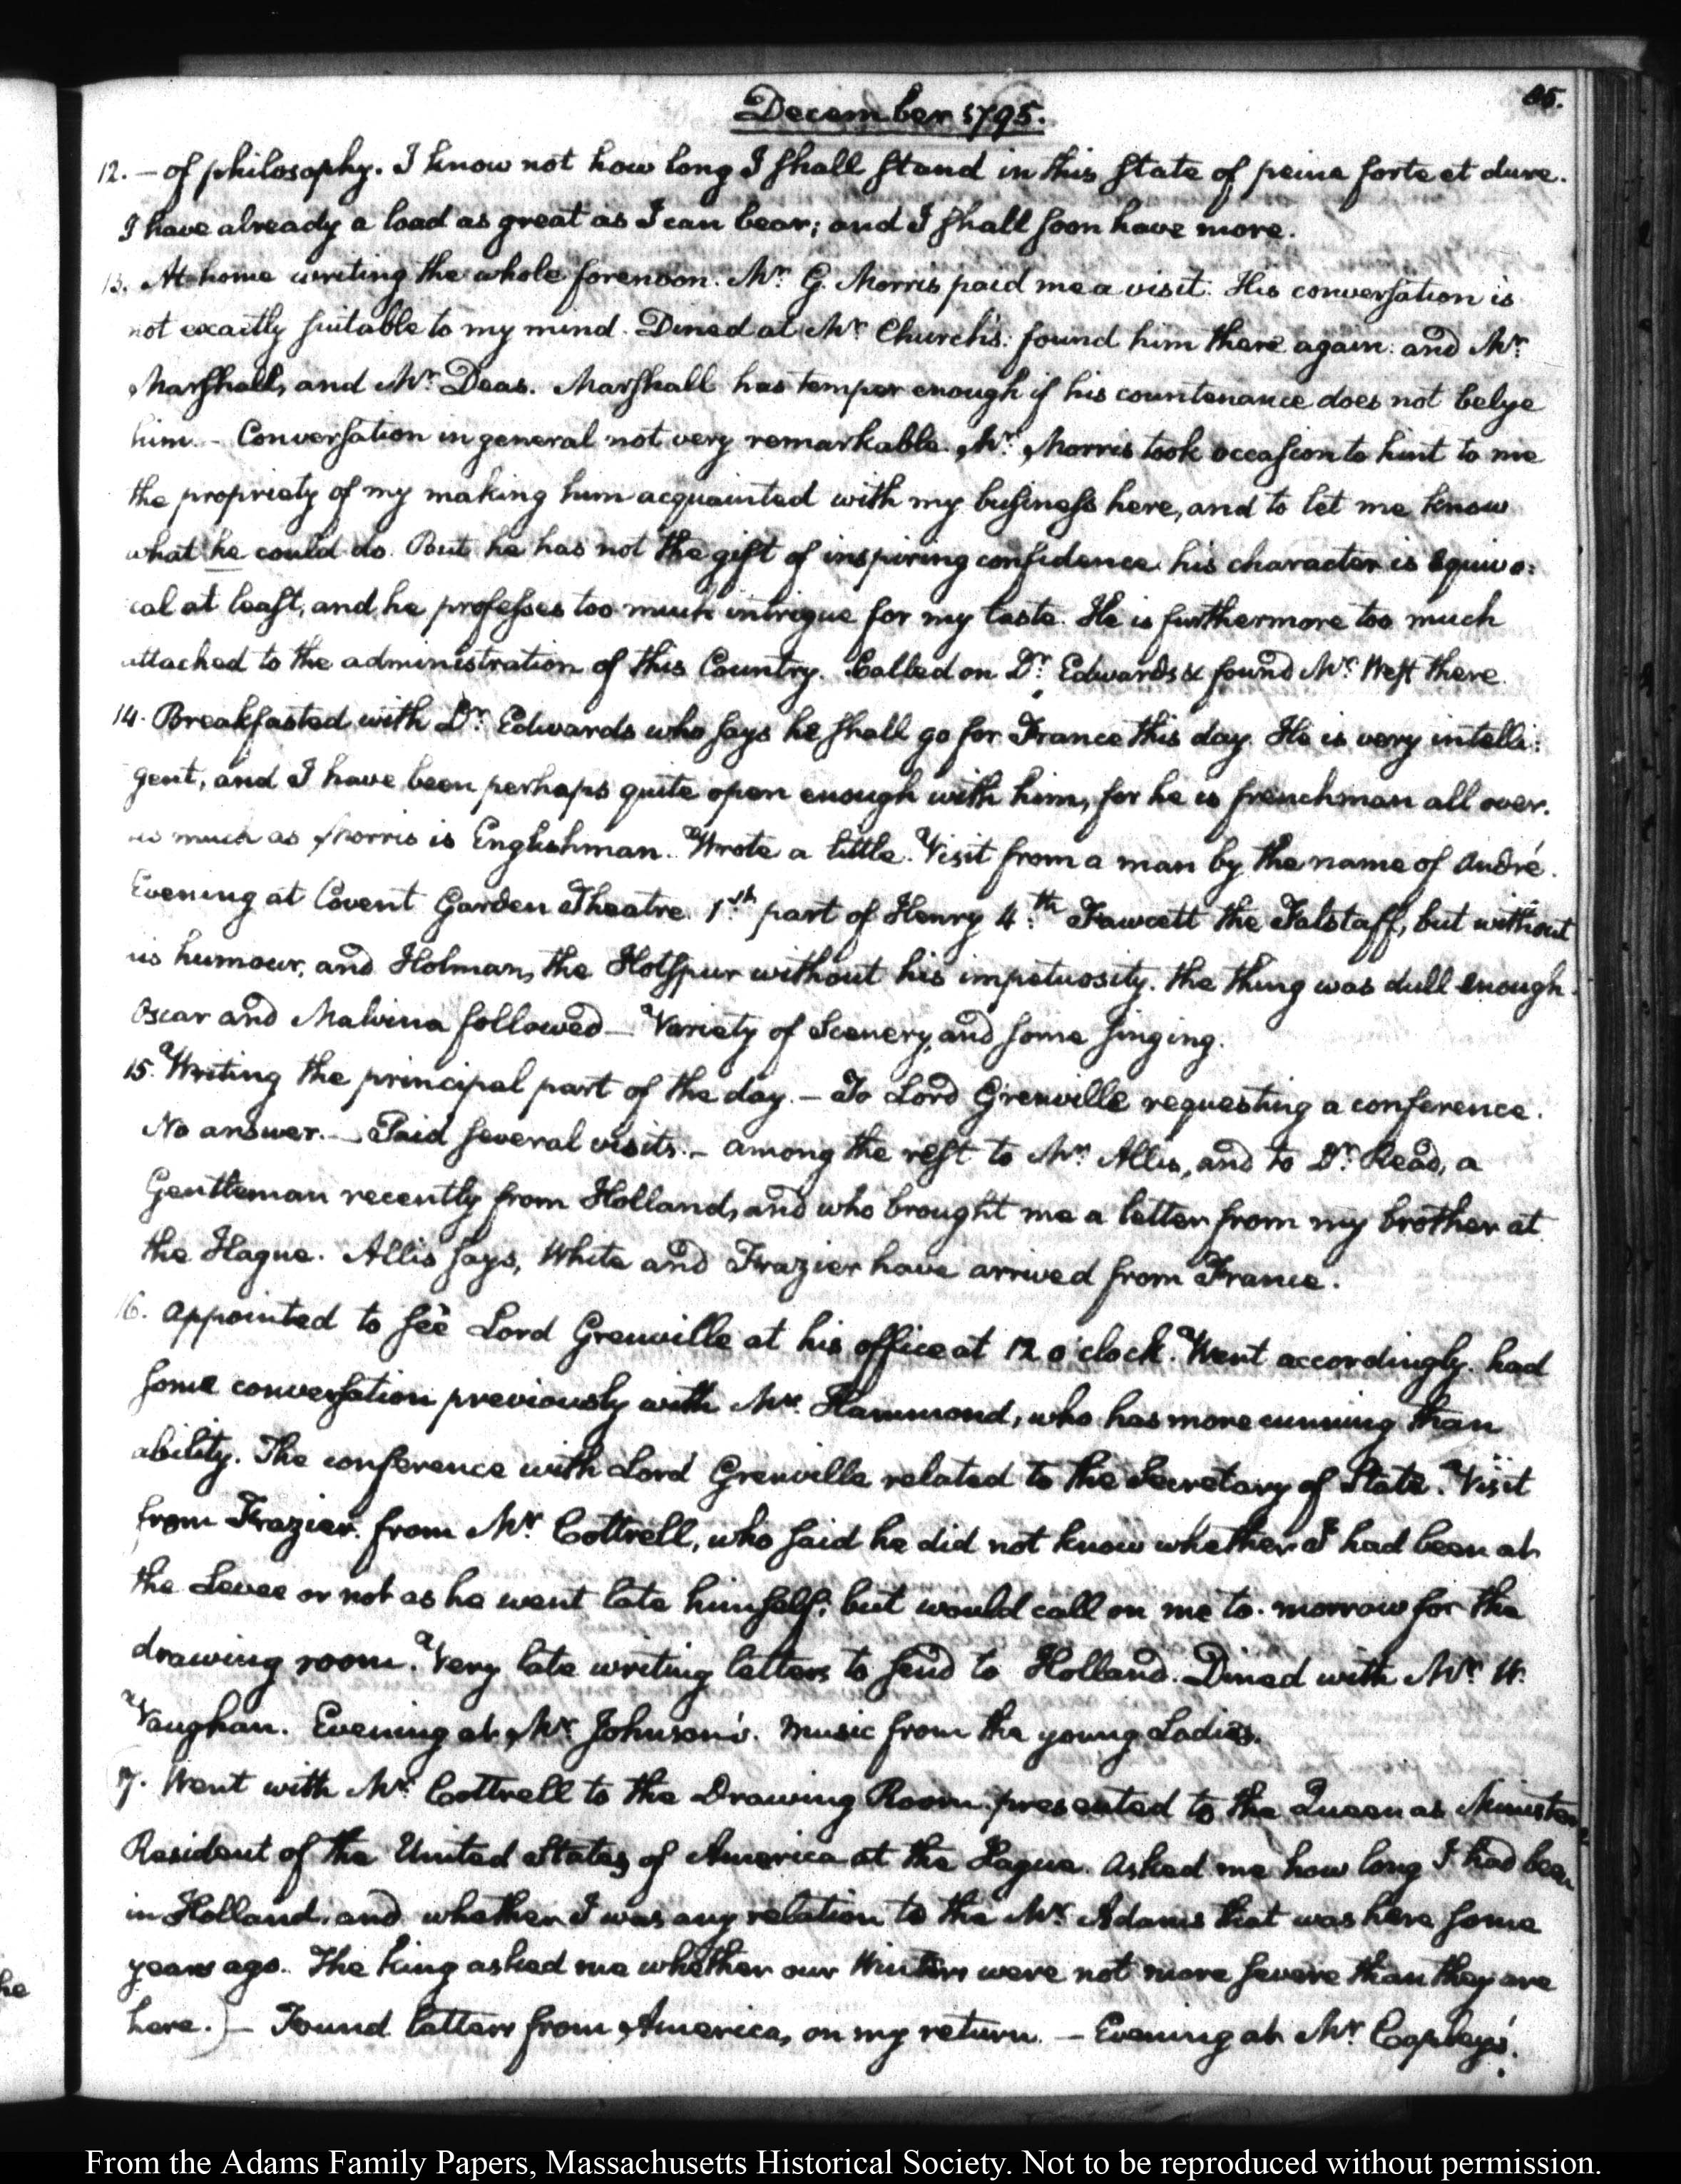 December 1795.
85.
12. – of philosophy. I know not how long I shall stand in this state of peine forte et dure.
I have already a load as great as I can bear; and I shall soon have more.
13. At home writing the whole forenoon. Mr. G. Morris paid me a visit. His conversation is
not exactly suitable to my mind. Dined at Mr. Church's: found him there again: and Mr.
Marshall, and Mr. Deas. Marshall has temper enough if his countenance does not belye
him. – Conversation in general not very remarkable. Mr. Morris took occasion to hint to me
the propriety of my making him acquainted with my business here, and to let me know
what he could do. But he has not the gift of inspiring confidence. his character is equivo:
cal at least, and he professes too much intrigue for my taste. He is furthermore too much
attached to the administration of this Country. Called on Dr. Edwards & found Mr. West there.
14. Breakfasted with Dr. Edwards who says he shall go for France this day. He is very intelli:
gent, and I have been perhaps quite open enough with him, for he is frenchman all over.
as much as Morris is Englishman. Wrote a little. Visit from a man by the name of André.
Evening at Covent Garden Theatre. 1st. part of Henry 4.th Fawcett the Falstaff, but without
his humour, and Holman, the Hotspur without his impetuosity. the thing was dull enough.
Oscar and Malvina followed – Variety of Scenery, and some singing.
15. Writing the principal part of the day. – To Lord Grenville requesting a conference.
No answer. – Paid several visits. – among the rest to Mr. Allis, and to Dr. Read, a
Gentleman recently from Holland, and who brought me a letter from my brother at
the Hague. Allis says, White and Frazier have arrived from France.
16. Appointed to see Lord Grenville at his office at 12 o'clock. Went accordingly. had
some conversation previously with Mr. Hammond, who has more cunning than
ability. The conference with Lord Grenville related to the Secretary of State. Visit
from Frazier. from Mr. Cottrell, who said he did not know whether I had been at
the Levee or not as he went late himself; but would call on me to-morrow for the
drawing room. Very late writing letters to send to Holland. Dined with Mr. W.
Vaughan. Evening at Mr. Johnson's. Music from the young Ladies.
17. Went with Mr. Cottrell to the Drawing Room. presented to the Queen as Minister
Resident of the United States of America at the Hague. Asked me how long I had been
in Holland, and whether I was any relation to the Mr. Adams that was here some
years ago. The King asked me whether our Winters were not more severe than they are
here.) – Found letters from America, on my return. – Evening at Mr. Copley's.
he
From the Adams Family Papers, Massachusetts Historical Society. Not to be reproduced without permission.